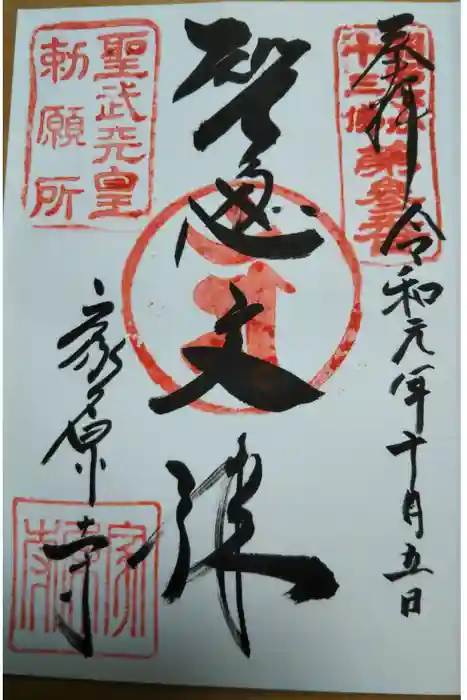 奉拝 令和元年十月五日
十三佛
第参番
智恵文殊
聖武天皇
勅願所
家原寺
家原寺